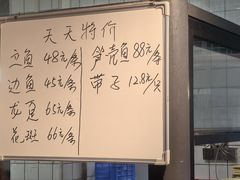 天天特价
立鱼 48元/条
边鱼 45元/条
龙趸 65元/条
花斑 66元/条
笋壳鱼 88元/条
带子 12.8元/只